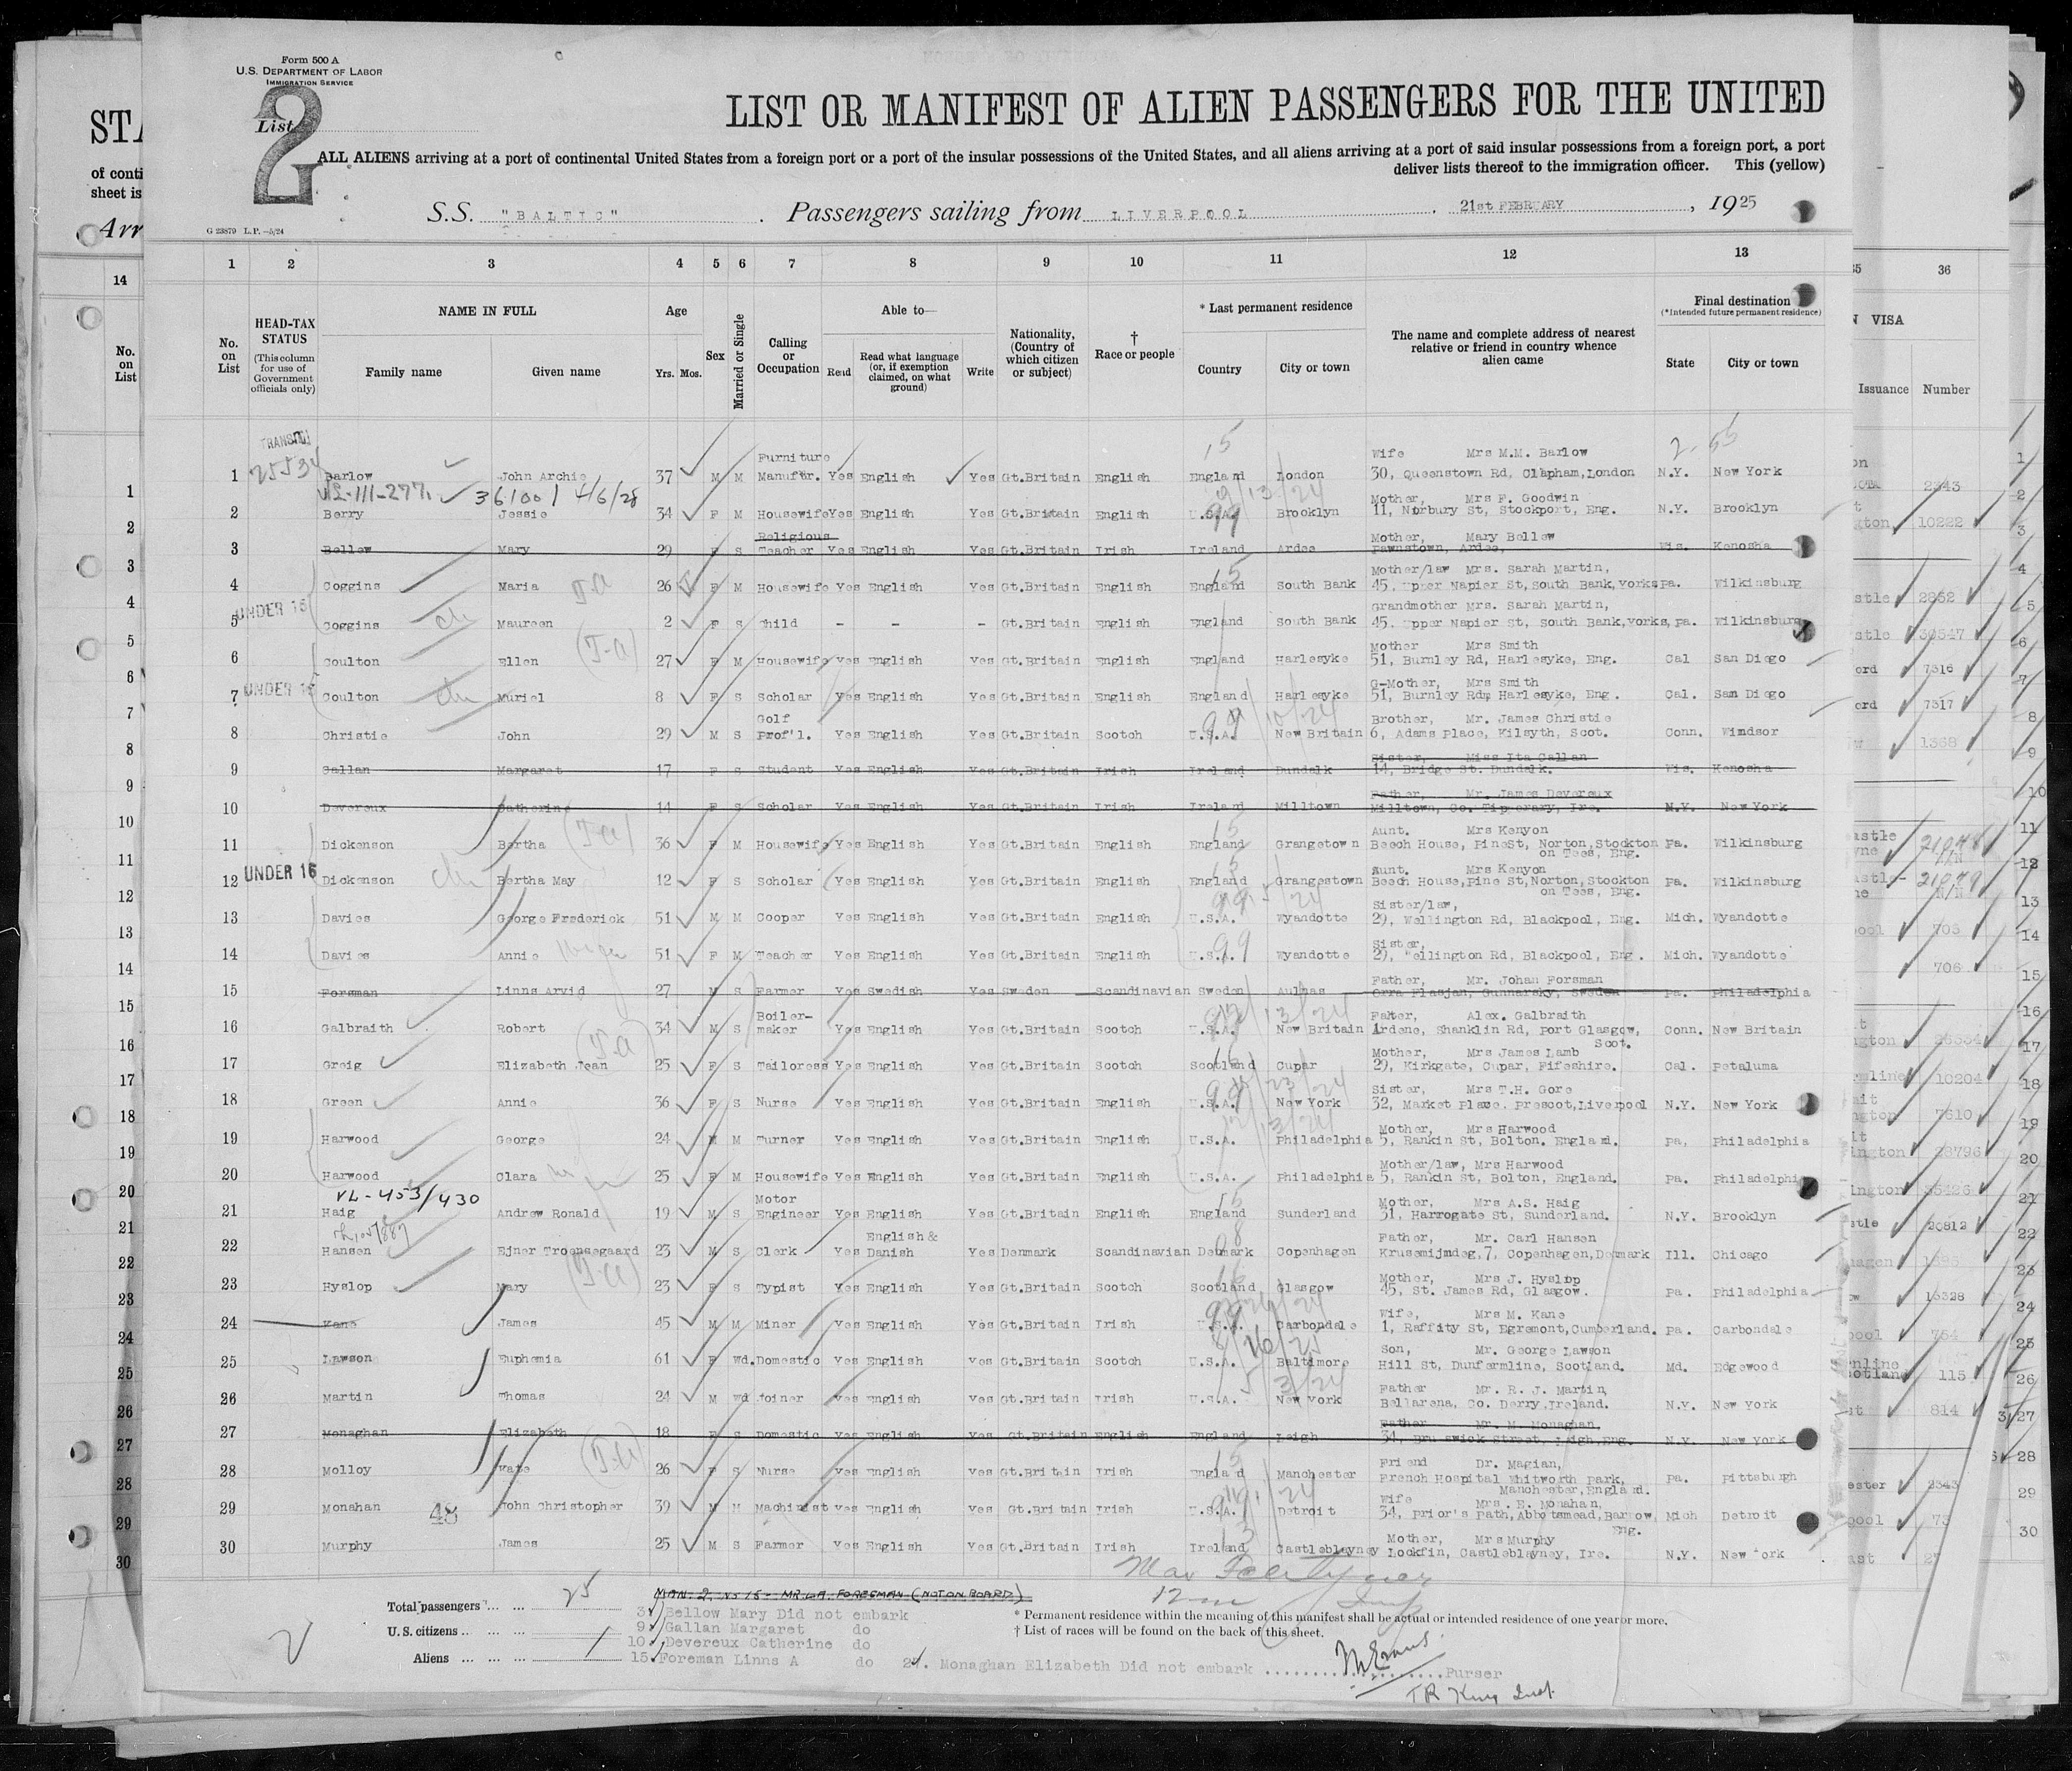 Form 500 A
U.S. DEPARTMENT OF LABOR
IMMIGRATION SERVICE
List 2
LIST OR MANIFEST OF ALIEN PASSENGERS FOR THE UNITED
ALL ALIENS arriving at a port of continental United States from a foreign port or a port of the insular possessions of the United States, and all aliens arriving at a port of said insular possessions from a foreign port, a port
deliver lists thereof to the immigration officer. This (yellow)
S.S. "BALTIC". Passengers sailing from LIVERPOOL, 21st FEBRUARY, 1925
G 23879 L.P.—5/24
1 2 3 4 5 6 7 8 9 10 11 12 13
No. on List
HEAD-TAX STATUS
(This column for use of Government officials only)
NAME IN FULL
Family name Given name
Age
Yrs. Mos.
Sex
Married or Single
Calling or Occupation
Able to—
Read
Read what language (or, if exemption claimed, on what ground)
Write
Nationality, (Country of which citizen or subject)
† Race or people
* Last permanent residence
Country City or town
The name and complete address of nearest relative or friend in country whence alien came
Final destination
(*Intended future permanent residence)
State City or town
Furniture Wife Mrs M.M. Barlow
1 Barlow John Archie 37 M M Manufur. Yes English Yes Gt.Britain English England London 30, Queenstown Rd, Clapham, London N.Y. New York
36100 / 4/6/28
Mother, Mrs F. Goodwin
2 Berry Jessie 34 F M Housewife Yes English Yes Gt.Britain English U.S.A. Brooklyn 11, Norbury St, Stockport, Eng. N.Y. Brooklyn
Religious Mother, Mary Bellew
3 Bellew Mary 29 F S Teacher Yes English Yes Gt.Britain Irish Ireland Ardee Pawnstown, Ardee, Wis. Kenosha
Mother/law Mrs. Sarah Martin,
4 Coggins Maria 26 F M Housewife Yes English Yes Gt.Britain English England South Bank 45, Upper Napier St, South Bank, Yorks Pa. Wilkinsburg
UNDER 16 Grandmother Mrs. Sarah Martin,
5 Coggins Maureen 2 F S Child - - - Gt.Britain English England South Bank 45, Upper Napier St, South Bank, Yorks, Pa. Wilkinsburg
Mother Mrs Smith
6 Coulton Ellen 27 F M Housewife Yes English Yes Gt.Britain English England Harlesyke 51, Burnley Rd, Harlesyke, Eng. Cal San Diego
UNDER 16 G-Mother, Mrs Smith
7 Coulton Muriel 8 F S Scholar Yes English Yes Gt.Britain English England Harlesyke 51, Burnley Rd, Harlesyke, Eng. Cal. San Diego
Golf Brother, Mr. James Christie
8 Christie John 29 M S Prof'l. Yes English Yes Gt.Britain Scotch U.S.A. New Britain 6, Adams Place, Kilsyth, Scot. Conn. Windsor
Sister, Miss Ita Callan
9 Callan Margaret 17 F S Student Yes English Yes Gt.Britain Irish Ireland Dundalk 14, Bridge St. Dundalk. Wis. Kenosha
Father, Mr. James Devereux
10 Devereux Catherine 14 F S Scholar Yes English Yes Gt.Britain Irish Ireland Milltown Milltown, Co. Tipperary, Ire. N.Y. New York
Aunt. Mrs Kenyon
11 Dickenson Bertha 36 F M Housewife Yes English Yes Gt.Britain English England Grangetown Beech House, PineSt, Norton, Stockton Pa. Wilkinsburg
on Tees, Eng.
UNDER 16 Aunt. Mrs Kenyon
12 Dickenson Bertha May 12 F S Scholar Yes English Yes Gt.Britain English England Grangestown Beech House, Pine St, Norton, Stockton Pa. Wilkinsburg
on Tees, Eng.
Sister/law,
13 Davies George Frederick 51 M M Cooper Yes English Yes Gt.Britain English U.S.A. Wyandotte 29, Wellington Rd, Blackpool, Eng. Mich. Wyandotte
Sister,
14 Davies Annie 51 F M Teacher Yes English Yes Gt.Britain English U.S.A. Wyandotte 29, "ellington Rd, Blackpool, Eng. Mich. Wyandotte
Father, Mr. Johan Forsman
15 Forsman Linns Arvid 27 M S Farmer Yes Swedish Yes Sweden Scandinavian Sweden Pa. Philadelphia
Boiler- Father, Alex. Galbraith
16 Galbraith Robert 34 M S maker Yes English Yes Gt.Britain Scotch U.S.A. New Britain Ardene, Shanklin Rd, Port Glasgow, Conn. New Britain
Scot.
Mother, Mrs James Lamb
17 Greig Elizabeth Jean 25 F S Tailoress Yes English Yes Gt.Britain Scotch Scotland Cupar 29, Kirkgate, Cupar, Fifeshire. Cal. Petaluma
Sister, Mrs T.H. Gore
18 Green Annie 36 F S Nurse Yes English Yes Gt.Britain English U.S.A. New York 32, Market Place, Prescot, Liverpool N.Y. New York
Mother, Mrs Harwood
19 Harwood George 24 M M Turner Yes English Yes Gt.Britain English U.S.A. Philadelphia 5, Rankin St, Bolton. England. Pa, Philadelphia
Mother/law, Mrs Harwood
20 Harwood Clara 25 F M Housewife Yes English Yes Gt.Britain English U.S.A. Philadelphia 5, Rankin St, Bolton, England. Pa. Philadelphia
VL-453/430 Motor Mother, Mrs A.S. Haig
21 Haig Andrew Ronald 19 M S Engineer Yes English Yes Gt.Britain English England Sunderland 31, Harrogate St, Sunderland. N.Y. Brooklyn
English & Father, Mr. Carl Hansen
22 Hansen Ejner Troensegaard 23 M S Clerk Yes Danish Yes Denmark Scandinavian Denmark Copenhagen Krusemijndeg, 7, Copenhagen, Denmark Ill. Chicago
Mother, Mrs J. Hyslop
23 Hyslop Mary 23 F S Typist Yes English Yes Gt.Britain Scotch Scotland Glasgow 45, St. James Rd, Glasgow. Pa. Philadelphia
Wife, Mrs M. Kane
24 Kane James 45 M M Miner Yes English Yes Gt.Britain Irish U.S.A. Carbondale 1, Raffity St, Egremont, Cumberland. Pa. Carbondale
Son, Mr. George Lawson
25 Lawson Euphemia 61 F Wd. Domestic Yes English Yes Gt.Britain Scotch U.S.A. Baltimore Hill St, Dunfermline, Scotland. Md. Edgewood
Father Mr. R. J. Martin,
26 Martin Thomas 24 M Wd Joiner Yes English Yes Gt.Britain Irish U.S.A. New York Bellarena, Co. Derry. Ireland. N.Y. New York
Father Mr. M. Monaghan.
27 Monaghan Elizabeth 18 F S Domestic Yes English Yes Gt.Britain English England Leigh 34, Brunswick Street, Leigh, Eng. N.Y. New York
Friend Dr. Magian,
28 Molloy Kate 26 F S Nurse Yes English Yes Gt.Britain Irish England Manchester French Hospital Whitworth Park, Pa. Pittsburgh
Manchester, England.
Wife Mrs. E. Monahan,
29 Monahan John Christopher 39 M M Machinist Yes English Yes Gt.Britain Irish U.S.A. Detroit 34, Prior's Path, Abbotsmead, Barrow, Mich Detroit
48 Eng.
Mother, Mrs Murphy
30 Murphy James 25 M S Farmer Yes English Yes Gt.Britain Irish Ireland Castleblayney Lockfin, Castleblayney, Ire. N.Y. New York
Total passengers 25
U.S. citizens
Aliens
MAN. 2, No 15 - MR. L.A. FORESMAN (NOT ON BOARD)
3. Bellow Mary Did not embark
9. Gallan Margaret do
10. Devereux Catherine do
15. Foreman Linns A do 27. Monaghan Elizabeth Did not embark
* Permanent residence within the meaning of this manifest shall be actual or intended residence of one year or more.
† List of races will be found on the back of this sheet.
Purser
14
No. on List
35 36
VISA
Issuance Number
2343
10222
2852
30547
7316
7317
1368
21048
21049
705
706
10204
7610
28796
20812
13328
754
115
814
2343